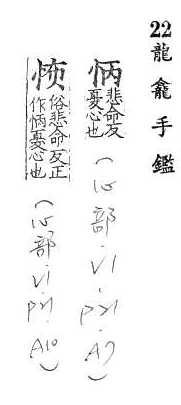 22龍龕手鑑
怲
悲命反
憂心也
(心部.V1.P21.A7)
俗悲命反正
作怲憂心也
(心部.V1.P21.A10)